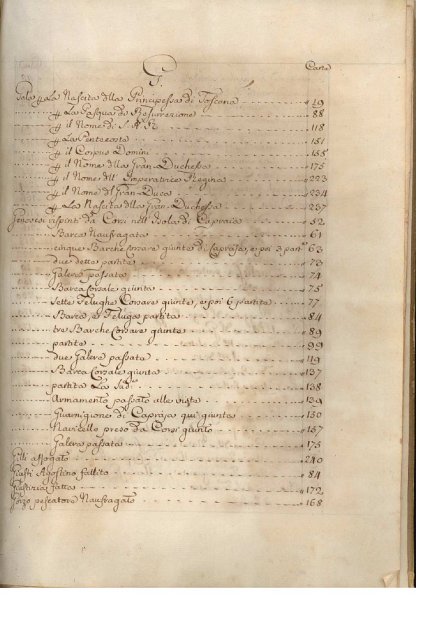 Carte
G.
Gala p la Nascita della Principessa di Toscana 19
p la Pasqua di Resurrezione 88
p il Nome di S. A. R. 118
p la Pentecoste 151
p il Corpus Domini 155
p il Nome della Gran Duchessa 175
p il Nome dell' Imperatrice Regina 223
p il Nome del Gran Duca 234
p la Nascita della Gran Duchessa 237
Genovesi respinti da Corsi nell' Isola di Capraia 52
Barca Naufragata 61
cinque Barche Corsare giunte di Capraja, e poi 3 part.e 63
due dette partite 73
Galera passata 74
Barca Corsale giunta 75
sette Felughe Corsare giunte, e poi 6 partite 77
Barca, e Feluga partita 84
tre Barche Corsare giunte 89
partite 99
due Galere passate 119
Barca Corsale giunta 137
partita La Sud.a 138
Armamento passato alla vista 139
Guarnigione di Capraja qui giunta 150
Navicello preso da Corsi giunto 157
Galera passata 175
affogato 240
Agostino fallito 84
Giustizia fatta 172
pescatore Naufragato 168